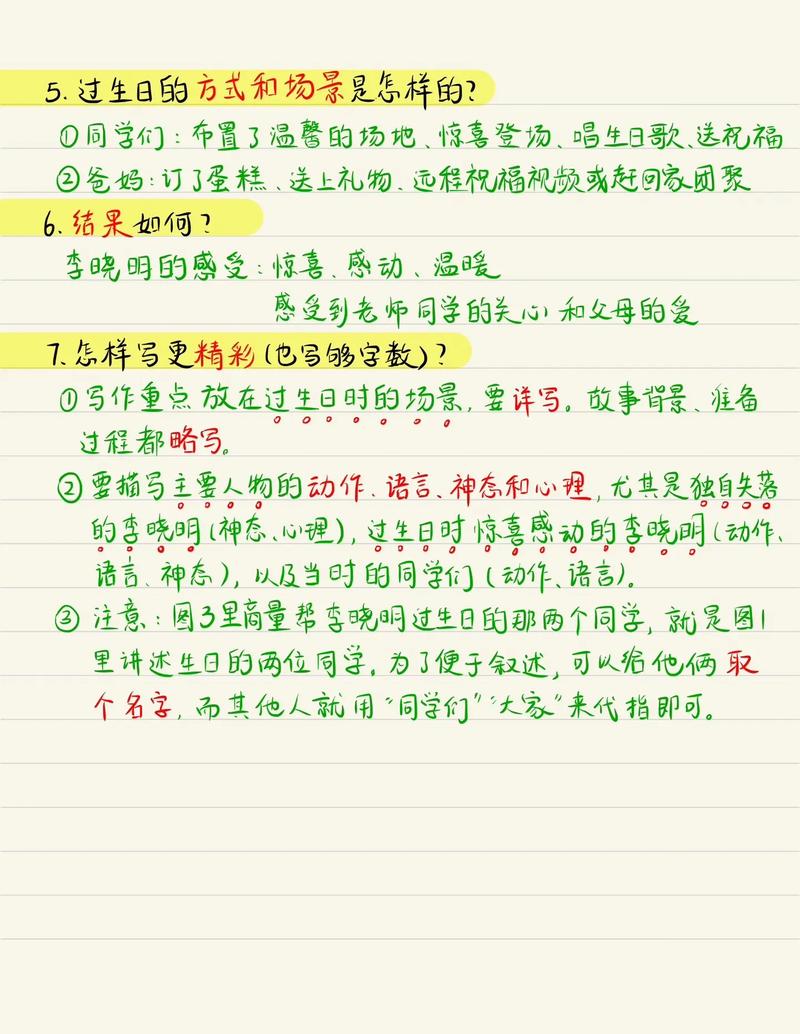 5.过生日的方式和场景是怎样的？
①同学们：布置了温馨的场地、惊喜登场、唱生日歌、送祝福
②爸妈：订了蛋糕、送上礼物、远程祝福视频或赶回家团聚
6.结果如何？
李晓明的感受：惊喜、感动、温暖
感受到老师同学的关心和父母的爱
7.怎样写更精彩（也写够字数）？
①写作重点放在过生日时的场景，要详写。故事背景、准备
过程都略写。
②要描写主要人物的动作、语言、神态和心理，尤其是独自失落
的李晓明（神态、心理），过生日时惊喜感动的李晓明（动作、
语言、神态），以及当时的同学们（动作、语言）。
③注意：图3里商量帮李晓明过生日的那两个同学，就是图1
里讲述生日的两位同学。为了便于叙述，可以给他俩取
个名字，而其他人就用“同学们”“大家”来代指即可。